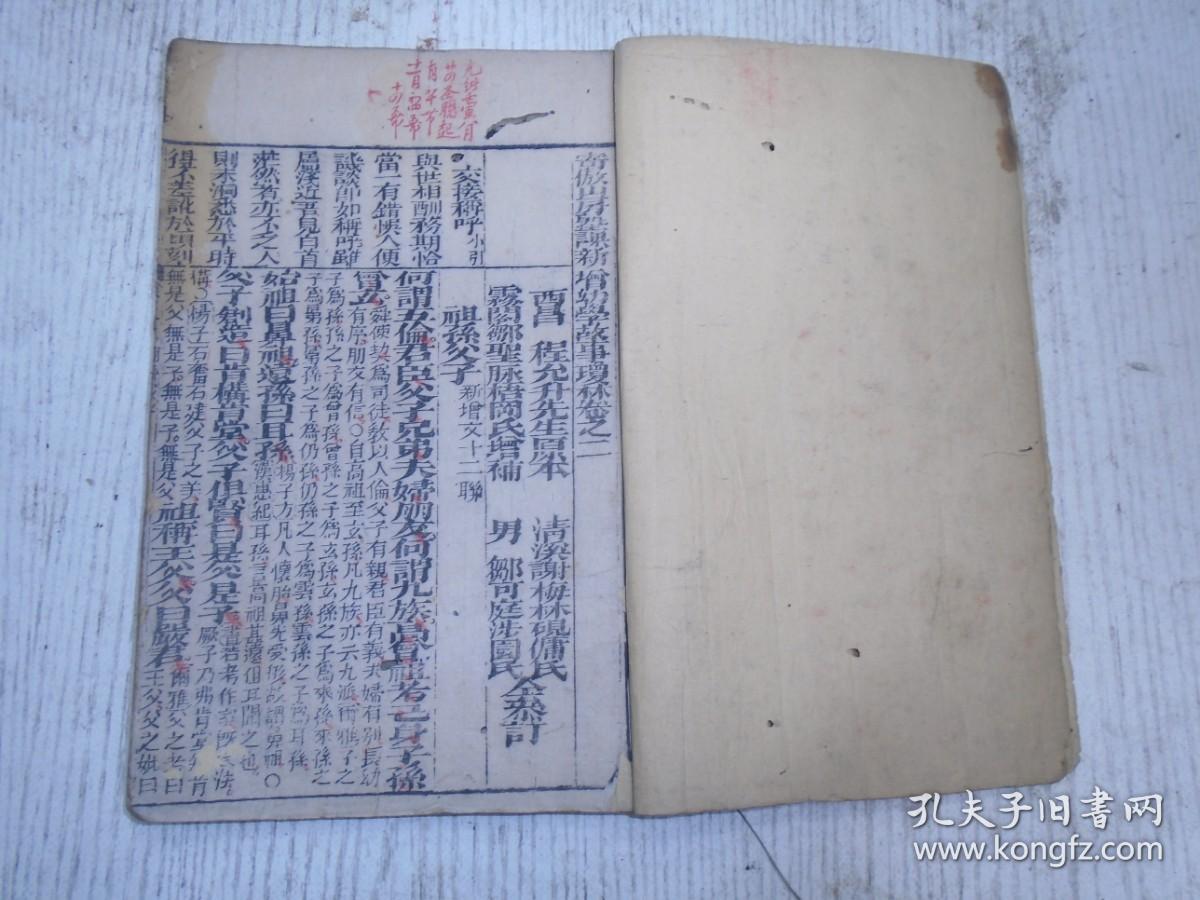 寄傲山房塾課新增幼學故事瓊林卷之二
西昌 程允升先生原本
霧閣鄒聖脉梧岡氏增補
清溪謝梅林硯傭氏
男 鄒可庭涉園氏
仝叅訂
祖孫父子 新增文十二聯
何謂五倫君臣父子兄弟夫婦朋友何謂九族高曾祖考己身子孫
曾玄 舜使契為司徒敎以人倫父子有親君臣有義夫婦有别長幼
有序朋友有信〇自高祖至玄孫凡九族亦云九派爾雅子之
子為孫孫之子為曾孫曾孫之子為玄孫玄孫之子為來孫來孫之
子為晜孫晜孫之子為仍孫仍孫之子為雲孫雲孫之子為耳孫
始祖曰鼻祖遠孫曰耳孫 楊子方凡人懷胎鼻先受形故謂鼻祖〇
漢惠紀耳孫言高祖甚遠但耳聞之也
父子創造曰肯構肯堂父子俱賢曰是父是子 書若考作室既底法
厥子乃弗肯堂矧肯
構〇楊子石奮石建父子之美
無是父無是子無是子無是父
祖稱王父父曰嚴君 爾雅父之考曰
王父父之妣曰
交接稱呼 小引
與世相酬務期恰
當一有錯悞人便
談論即如稱呼雖
屬淺近吾見白首
茫然者亦不乏人
則未洞悉於平時
得不差訛於頃刻
孔夫子旧书网
www.kongfz.com